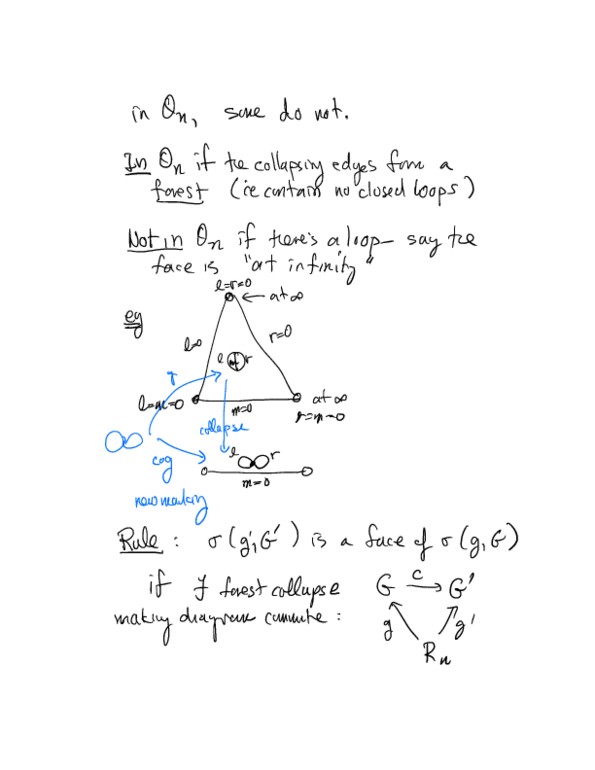 in O_n, some do not.
In O_n if the collapsing edges form a
forest (ie contain no closed loops)
Not in O_n if there's a loop – say the
face is "at infinity"
l=r=0
← at ∞
eg
l=0
r=0
l m r
l=m=0
m=0
at ∞
r=m=0
collapse
c∘g
l r
m=0
new marking
Rule : σ(g',G') is a face of σ(g,G)
if ∃ forest collapse G →c G'
making diagram commute : g g'
R_n